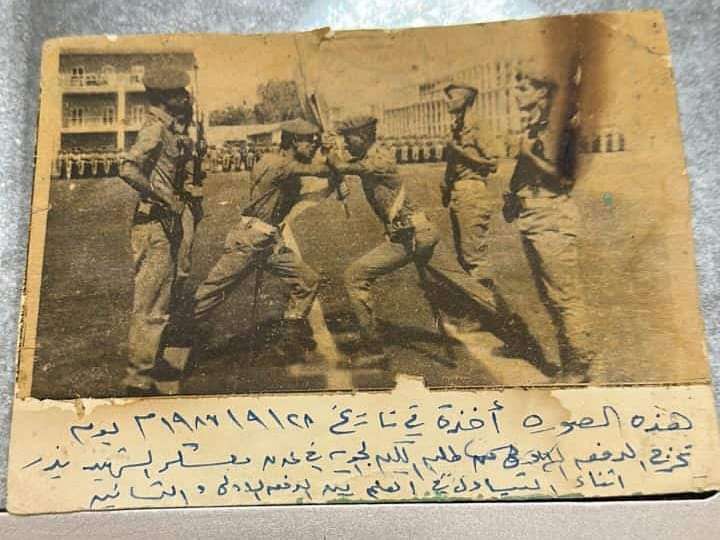 هذه الصوره أخذة في تاريخ ٢٨ / ٩ / ١٩٨٦م يوم
تخرج الدفعه من طلبه الكليه الحربيه في عدن معسكر الشهيد بدر
اثناء التبادل في العلم بين الدفعه الاولى والثانيه